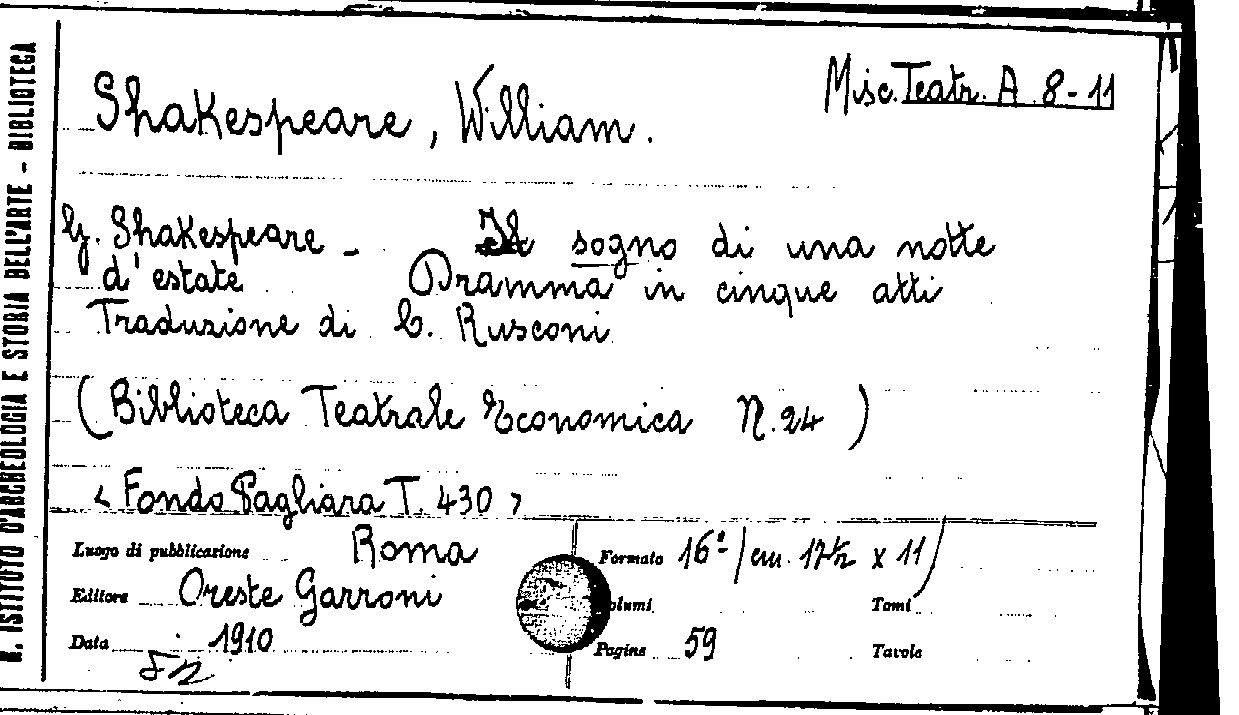 R. ISTITUTO D'ARCHEOLOGIA E STORIA DELL'ARTE - BIBLIOTECA
Misc. Teatr. A 8-11
Shakespeare, William.
G. Shakespeare - Il sogno di una notte
d'estate Dramma in cinque atti
Traduzione di C. Rusconi
(Biblioteca Teatrale Economica N. 24)
< Fondo Pagliara T. 430 >
Luogo di pubblicazione Roma
Formato 16º (cm. 17½ x 11)
Editore Oreste Garroni
Volumi Tomi
Data 1910
Pagine 59 Tavole